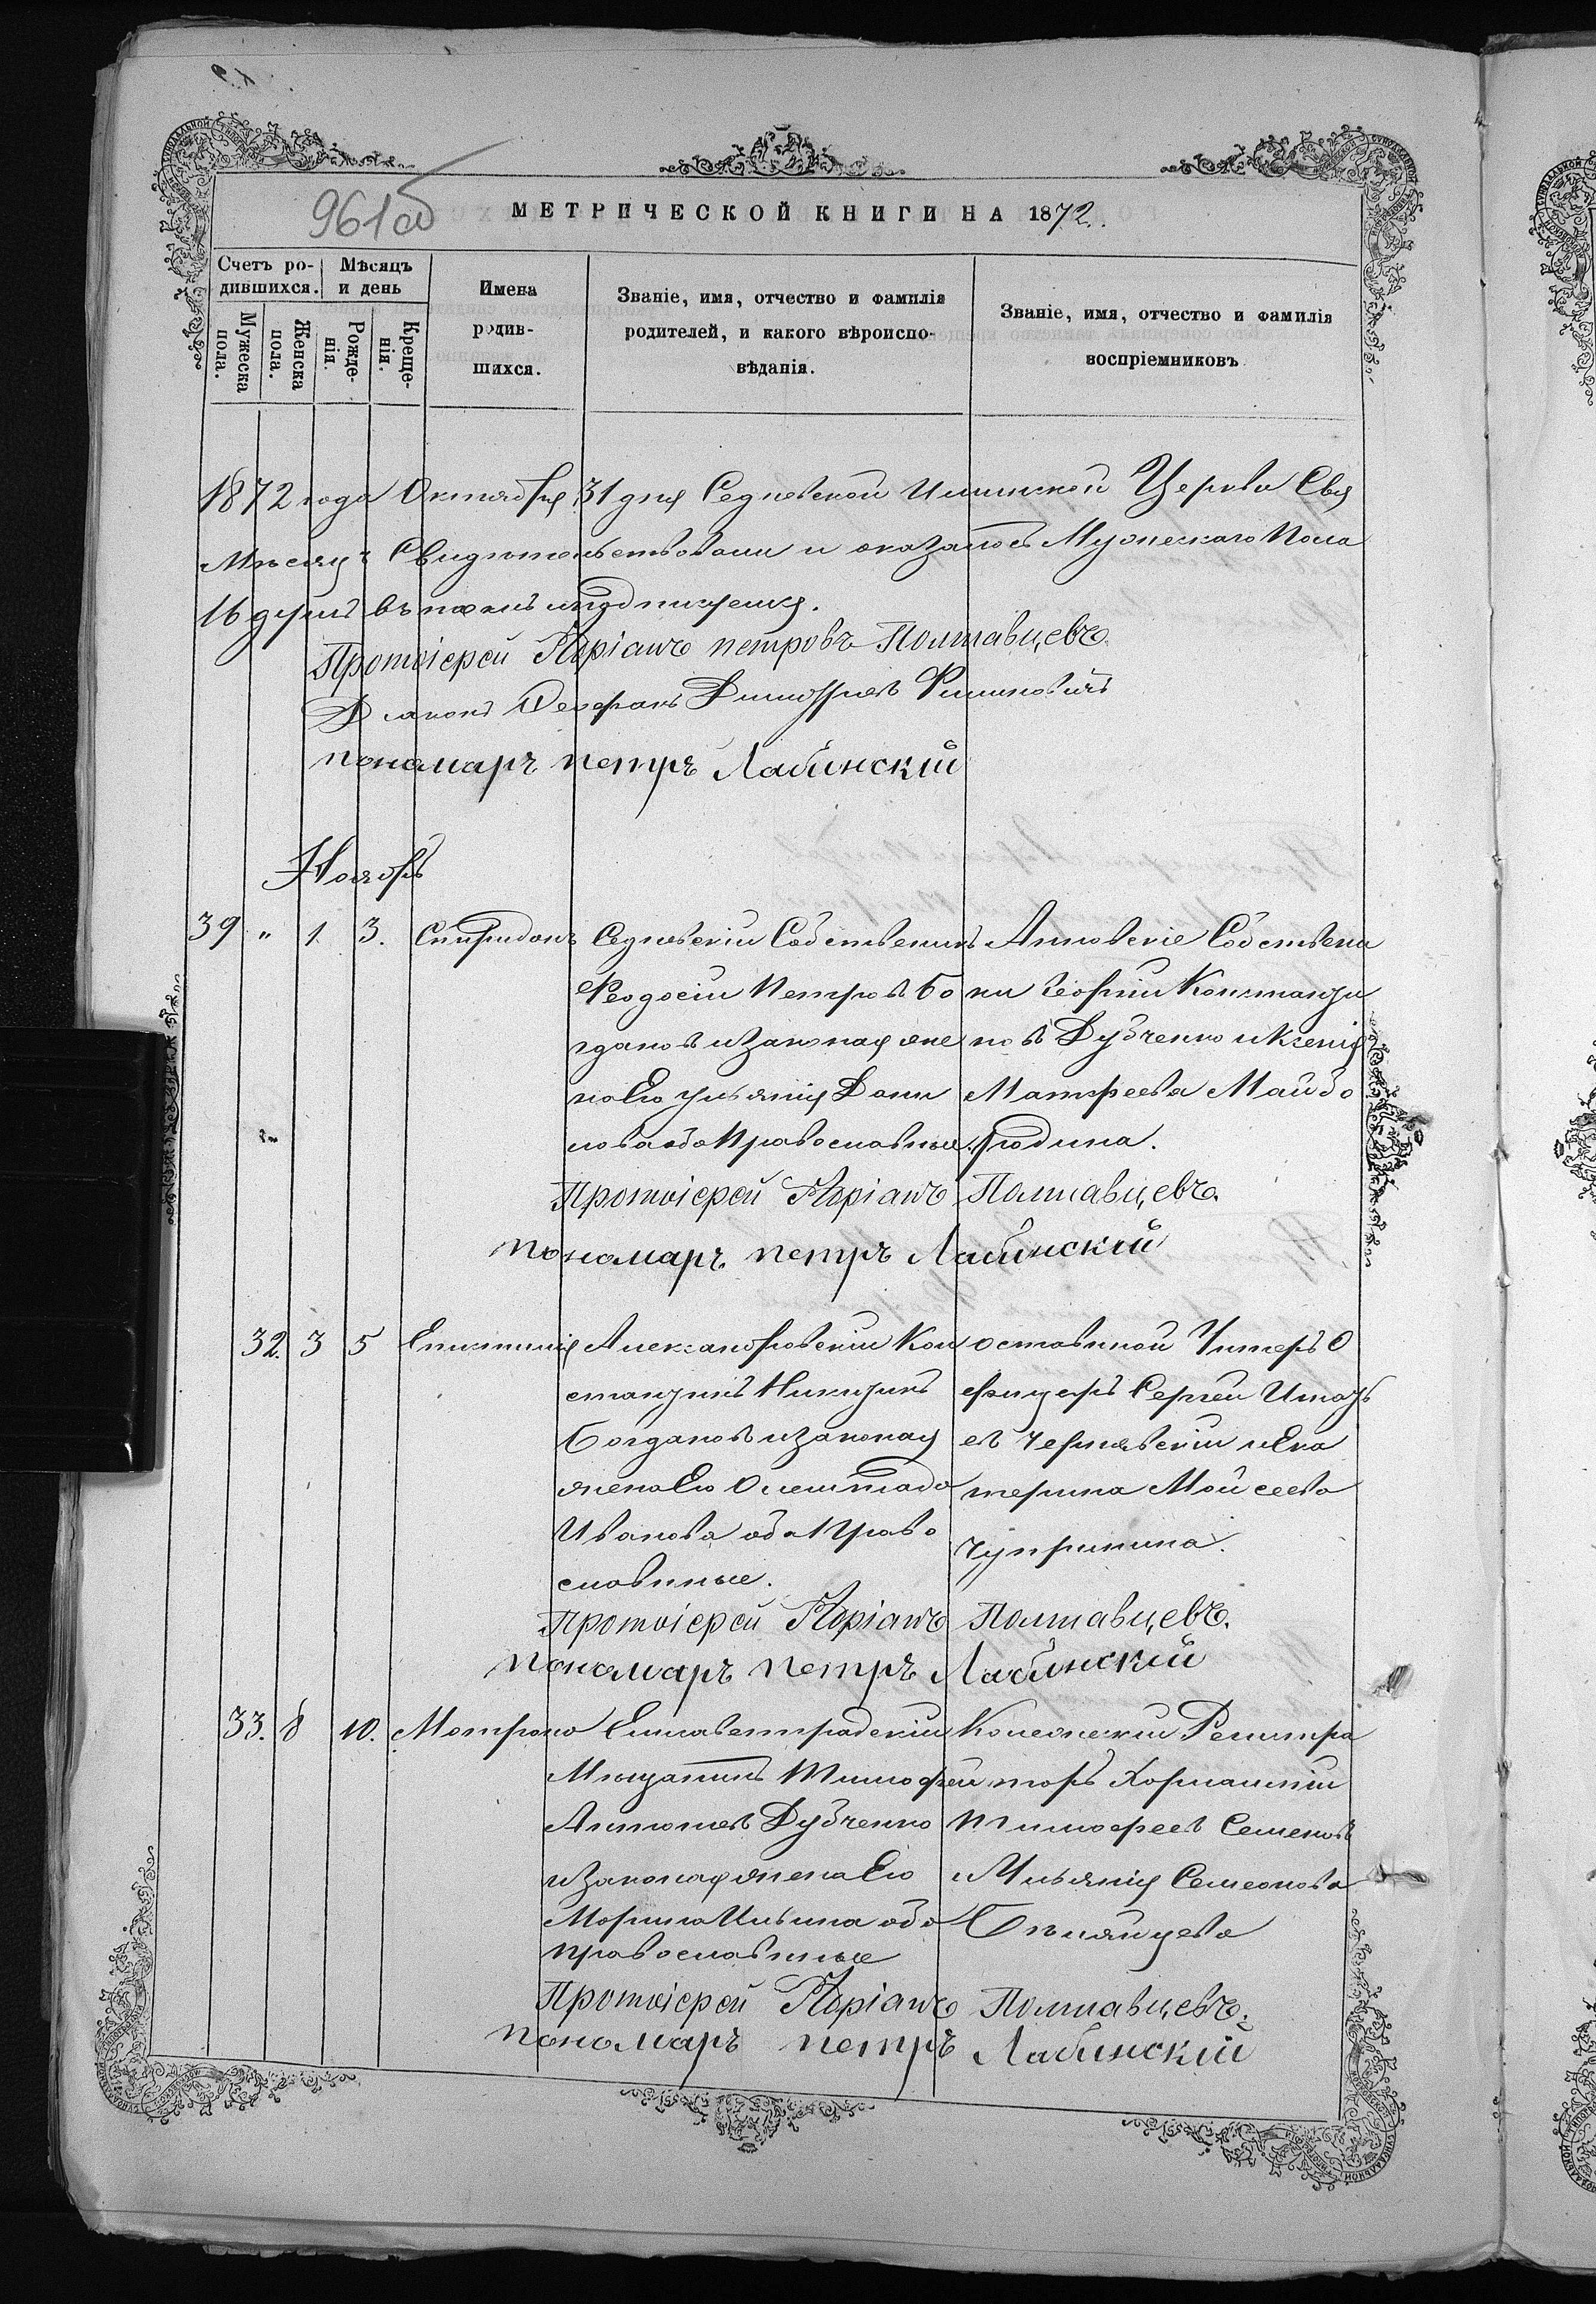 961об
МЕТРИЧЕСКОЙ КНИГИ НА 1872.
Счетъ ро-
дившихся.
Мѣсяцъ
и день
Мужеска
пола.
Женска
пола.
Рожде-
нія.
Креще-
нія.
Имена
родив-
шихся.
Званіе, имя, отчество и фамилія
родителей, и какого вѣроиспо-
вѣданія.
Званіе, имя, отчество и фамилія
воспріемниковъ
1872 года Октября 31 дня Седневской Церкви Сей
Мѣсяцъ Свидѣтельствовали и оказалось Мужескаго Пола
16 душъ въ томъ и подпишемся.
Протоіерей Петровъ Полтавцевъ.
Діаконъ Филиповичъ
пономаръ петръ Лабинскій
Ноябрь
39 " 1 3. Спиридонъ
Седневскій Собственикъ
Феодосій Петровъ Бо
гдановъ и законая же
на Его Ульянія Дани
лова оба Православные.
Собствени
ки Георгій Констанди
новъ Дубченко и Ксенія
Матфеева Майбо
родина.
Протоіерей Полтавцевъ.
пономаръ петръ Лабинскій
32. 3 5
Александровскій Кон
стандинъ Никидинъ
Богдановъ и законая
жена Его
Иванова оба Право
славные.
оставной Унтеръ О
фицеръ Сергей Игнать
евъ Чернявскій и Ека
терина Мойсеева
Чупринина.
Протоіерей Полтавцевъ.
пономаръ петръ Лабинскій
33. 8 10. Матрона
Елисаветградскій
Мещанинъ Тимофей
Антоновъ Дубченко
и законая жена Его
Марина Ильина оба
православные
Колежскій Регистра
торъ
Тимофеевъ Семеновъ
и Ульянія Семеонова
Протоіерей Полтавцевъ.
пономаръ петръ Лабинскій